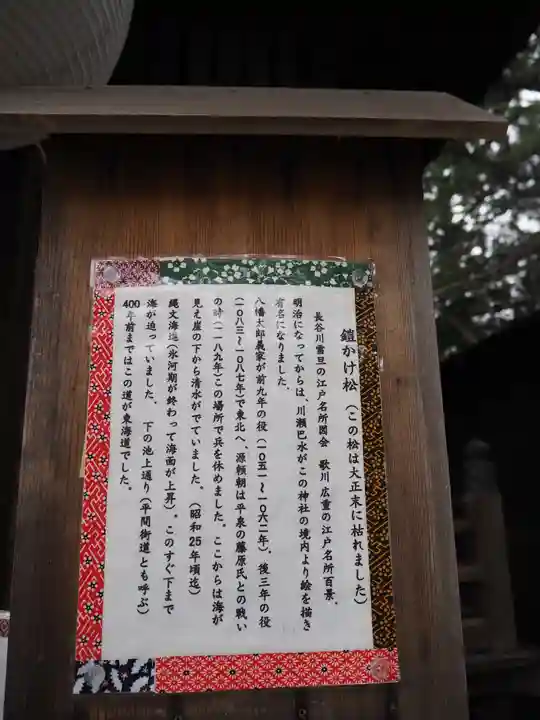 鎧かけ松 (この松は大正末に枯れました)
長谷川雪旦の江戸名所図会 歌川広重の江戸名所百景、
明治になってからは、川瀬巴水がこの神社の境内より絵を描き
有名になりました。
八幡太郎義家が前九年の役(一〇五一~一〇六二年)、後三年の役
(一〇八三~一〇八七年)で東北へ、源頼朝は平泉の藤原氏との戦い
の時(一一八九年)この場所で兵を休めました。ここからは海が
見え崖の下から清水がでていました。(昭和25年頃迄)
縄文海進(氷河期が終わって海面が上昇)。このすぐ下まで
海が迫っていました。 下の池上通り(平間街道とも呼ぶ)
400年前まではこの道が東海道でした。